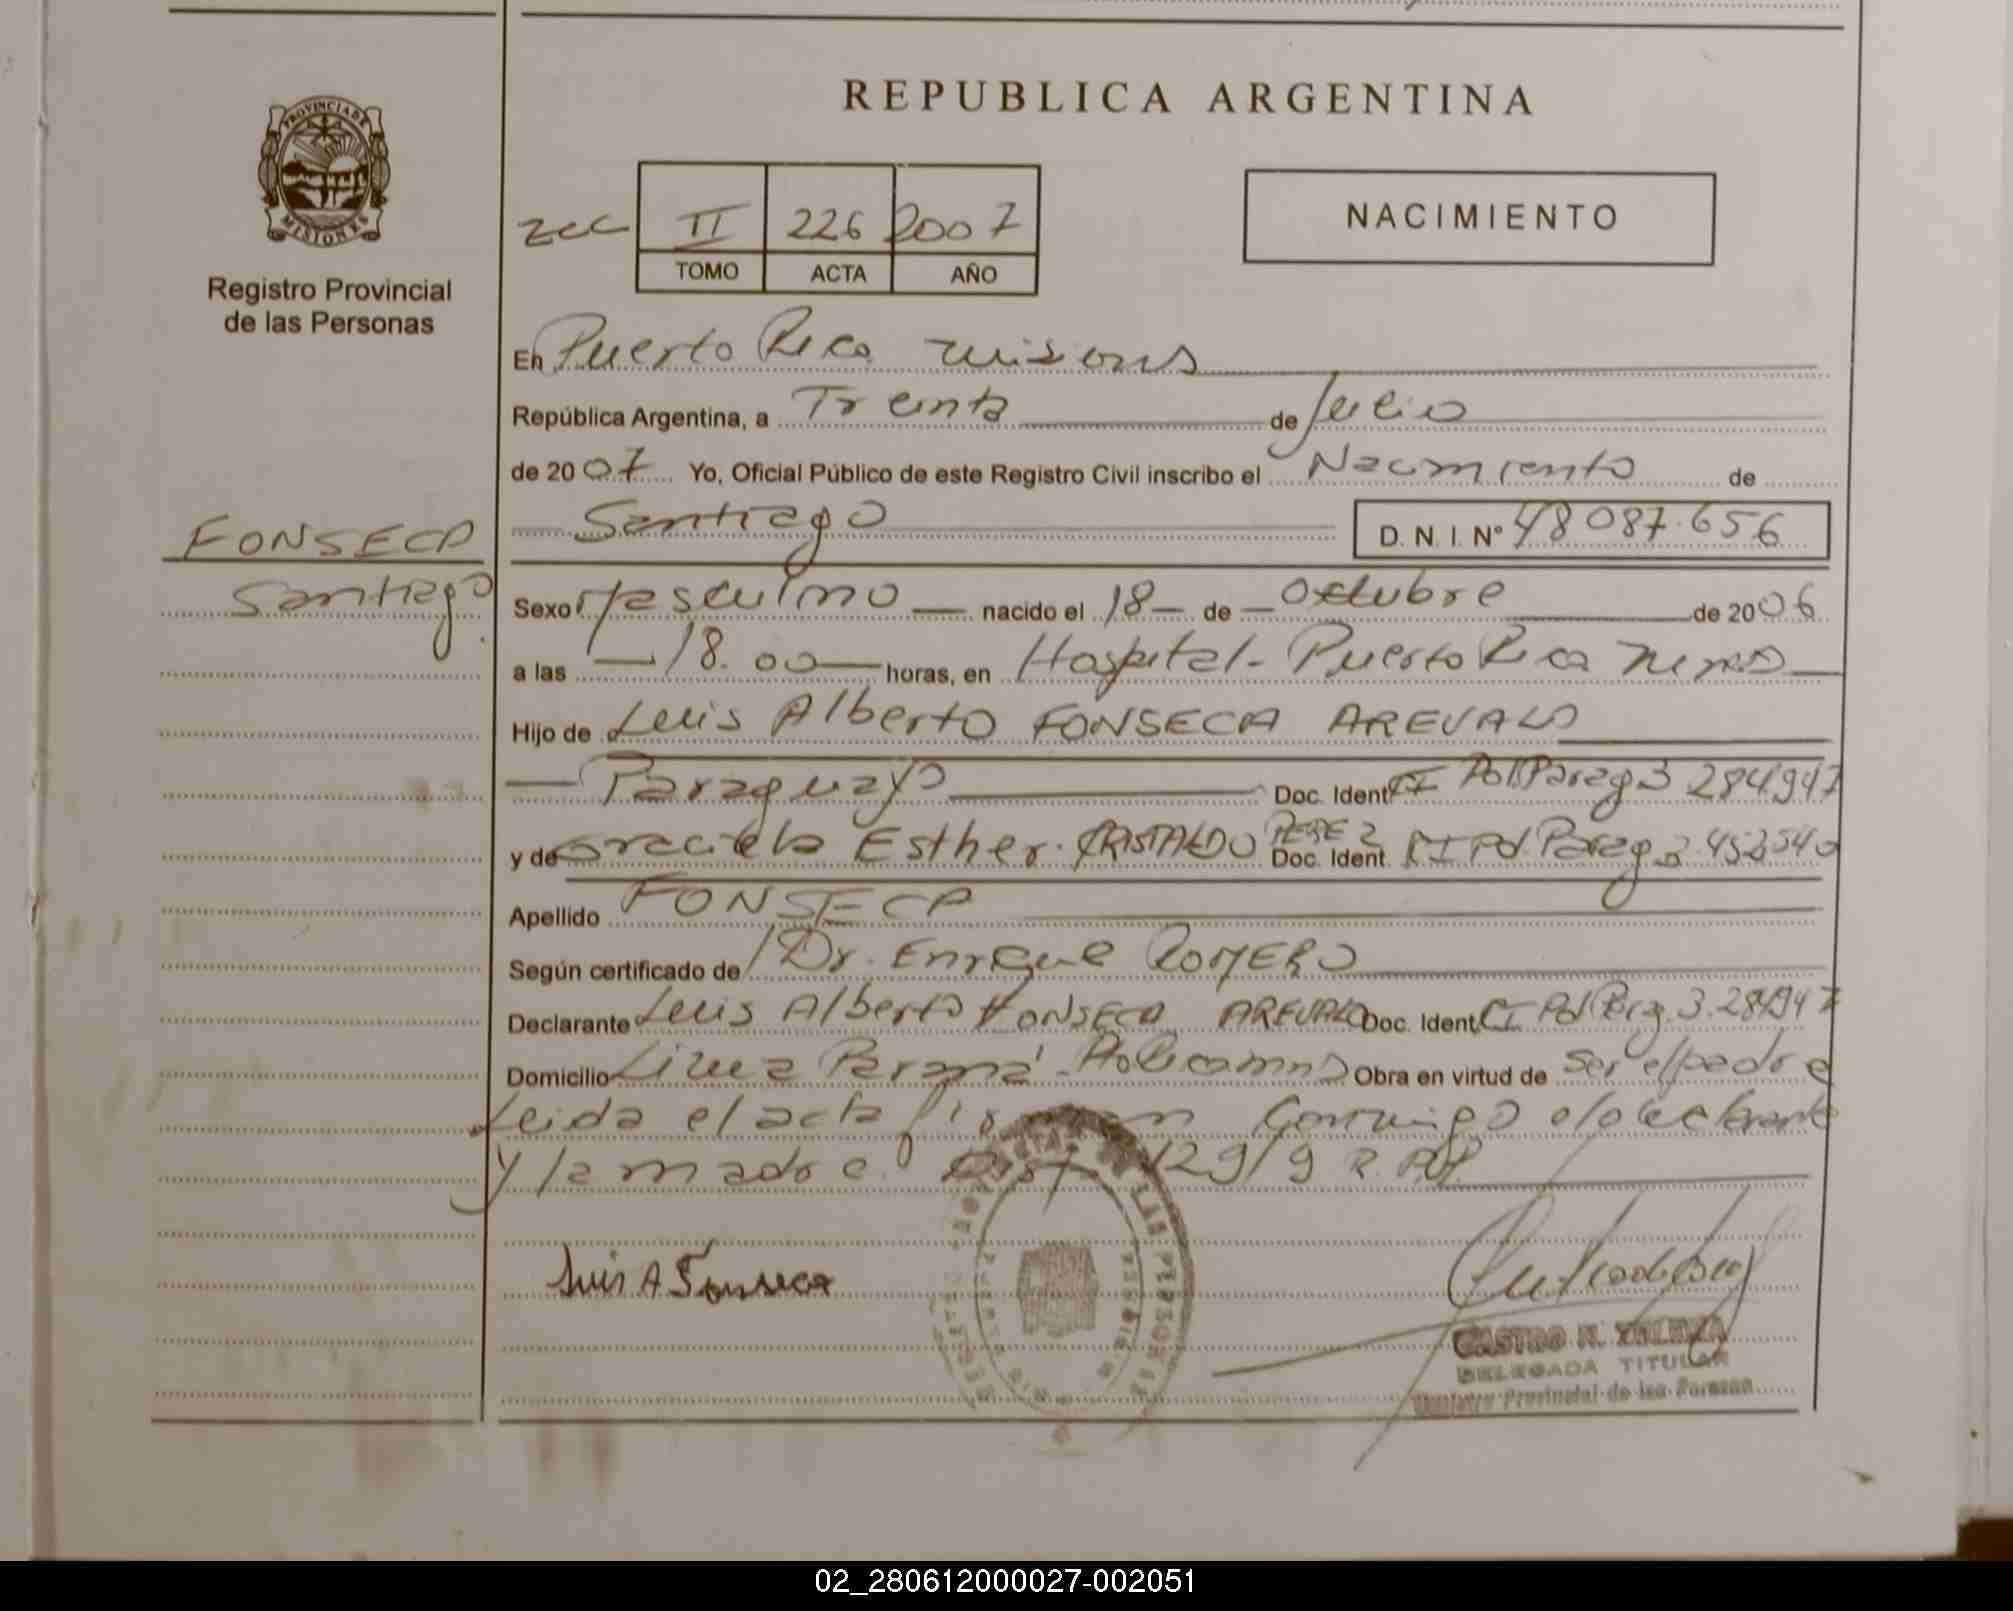 REPUBLICA ARGENTINA
PROVINCIA DE
MISIONES
Registro Provincial
de las Personas
II 226 2007
TOMO ACTA AÑO
NACIMIENTO
En Puerto Rico misiones
República Argentina, a Treinta de Julio
de 2007 Yo, Oficial Público de este Registro Civil inscribo el Nacimiento de
Santiago D. N. I. Nº 48 087.656
FONSECA
Santiago
Sexo Masculino nacido el 18 de Octubre de 2006
a las 18.00 horas, en Hospital - Puerto Rico
Hijo de Luis Alberto FONSECA AREVALO
Paraguayo Doc. Ident CI Pol Parag 3 284.947
y de Graciela Esther CRISTALDO PEREZ Doc. Ident. CI Pol. Parag 3.452540
Apellido FONSECA
Según certificado de Dr. Enrique ROMERO
Declarante Luis Alberto FONSECA AREVALO Doc. Ident CI Pol Parg. 3.284947
Domicilio Linea Paraná Obra en virtud de Ser el padre
Leida el acta firman Conmigo el declarante
y la madre 129/9 R.
Luis A Fonseca
DELEGADA TITULAR
Registro Provincial de las Personas
02_280612000027-002051